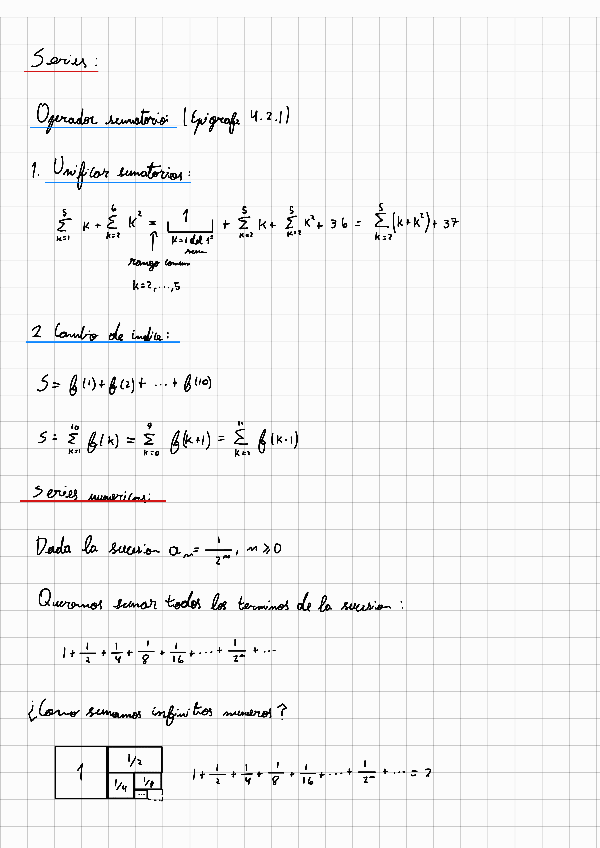 Series:
Operador sumatorio (Epigrafe 4.2.1)
1. Unificar sumatorios:
∑_{k=1}^{5} k + ∑_{k=2}^{6} k² = 1 + ∑_{k=2}^{5} k + ∑_{k=2}^{5} k² + 36 = ∑_{k=2}^{5} (k+k²) + 37
k=1 del 1º
sum
rango comun
k=2,...,5
2 Cambio de indice:
S = f(1) + f(2) + ... + f(10)
S = ∑_{k=1}^{10} f(k) = ∑_{k=0}^{9} f(k+1) = ∑_{k=2}^{11} f(k-1)
Series numericas:
Dada la sucesion a_n = 1/2^n, n ≥ 0
Queremos sumar todos los terminos de la sucesion:
1 + 1/2 + 1/4 + 1/8 + 1/16 + ... + 1/2^n + ...
¿Como sumamos infinitos numeros?
1 1/2 1/4 1/8 ... 1 + 1/2 + 1/4 + 1/8 + 1/16 + ... + 1/2^n + ... = 2